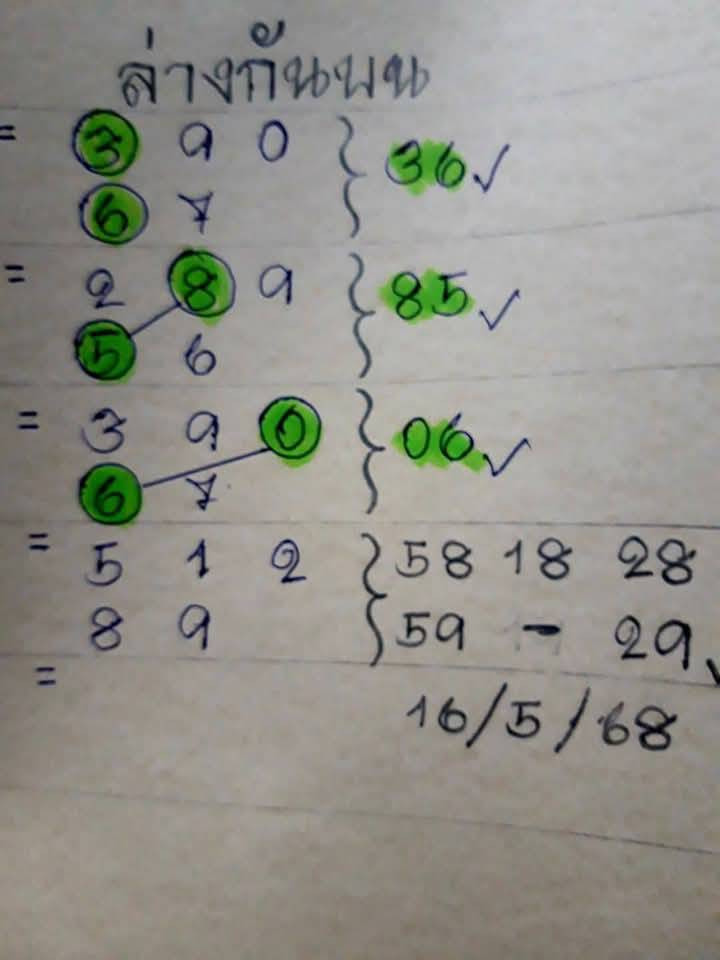 ล่างกันบน
= 3 9 0 } 36 ✓
6 7
= 2 8 9 } 85 ✓
5 6
= 3 9 0 } 06 ✓
6 7
= 5 1 2 } 58 18 28
8 9 59 - 29 ✓
=
16/5/68